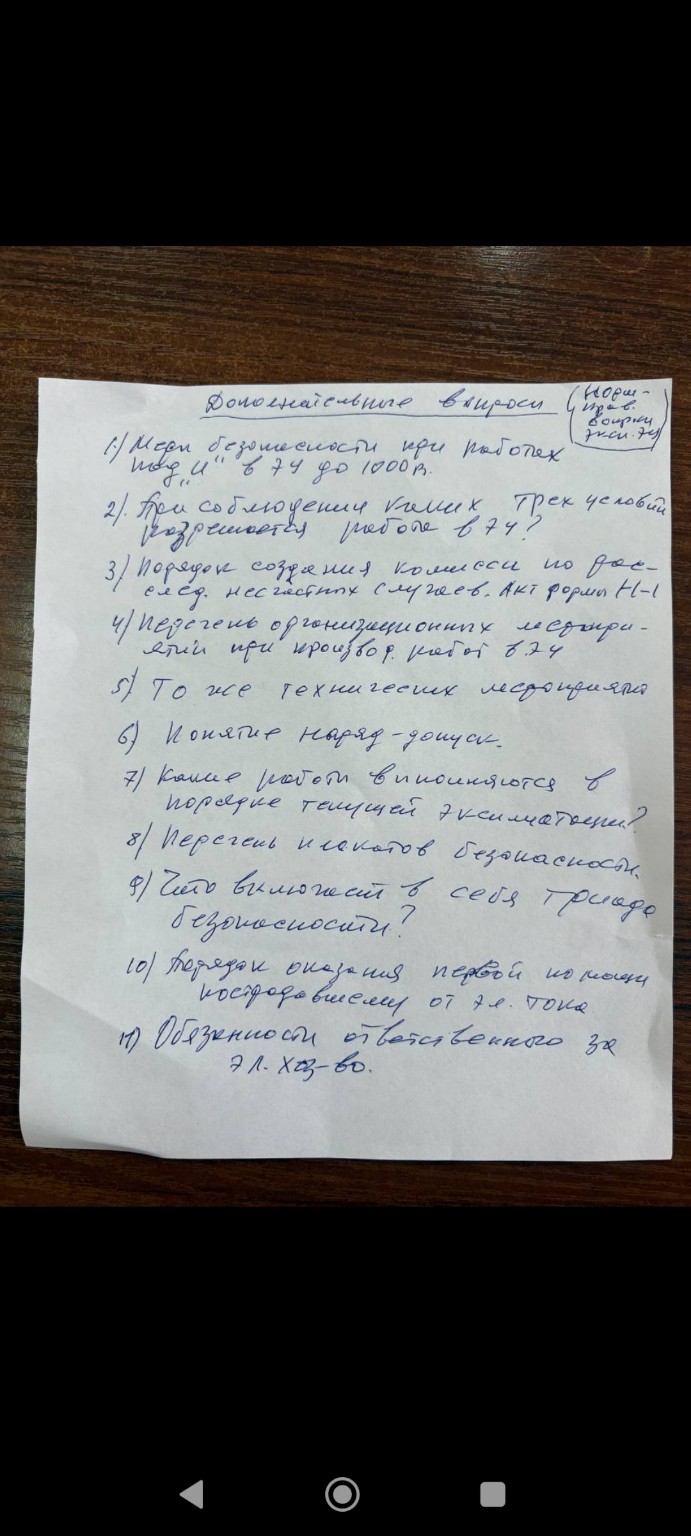 Дополнительные вопросы
(Норм-
прав.
вопросы
экспл. ЭУ)
1) Меры безопасности при работах
под "U" в ЭУ до 1000 В.
2). При соблюдении каких трех условий
разрешается работа в ЭУ?
3) Порядок создания комисси по рас-
след. несчастных случаев. Акт формы Н-1
4) Перечень организационных меропри-
ятий при производ. работ в ЭУ
5) То же технических мероприятий
6) Понятие наряд-допуск.
7) Какие работы выполняются в
порядке текущей эксплуатации?
8) Перечень плакатов безопасности.
9) Что включает в себя триада
безопасности?
10) Порядок оказания первой помощи
пострадавшему от эл. тока
11) Обязанности ответственного за
эл. хоз-во.